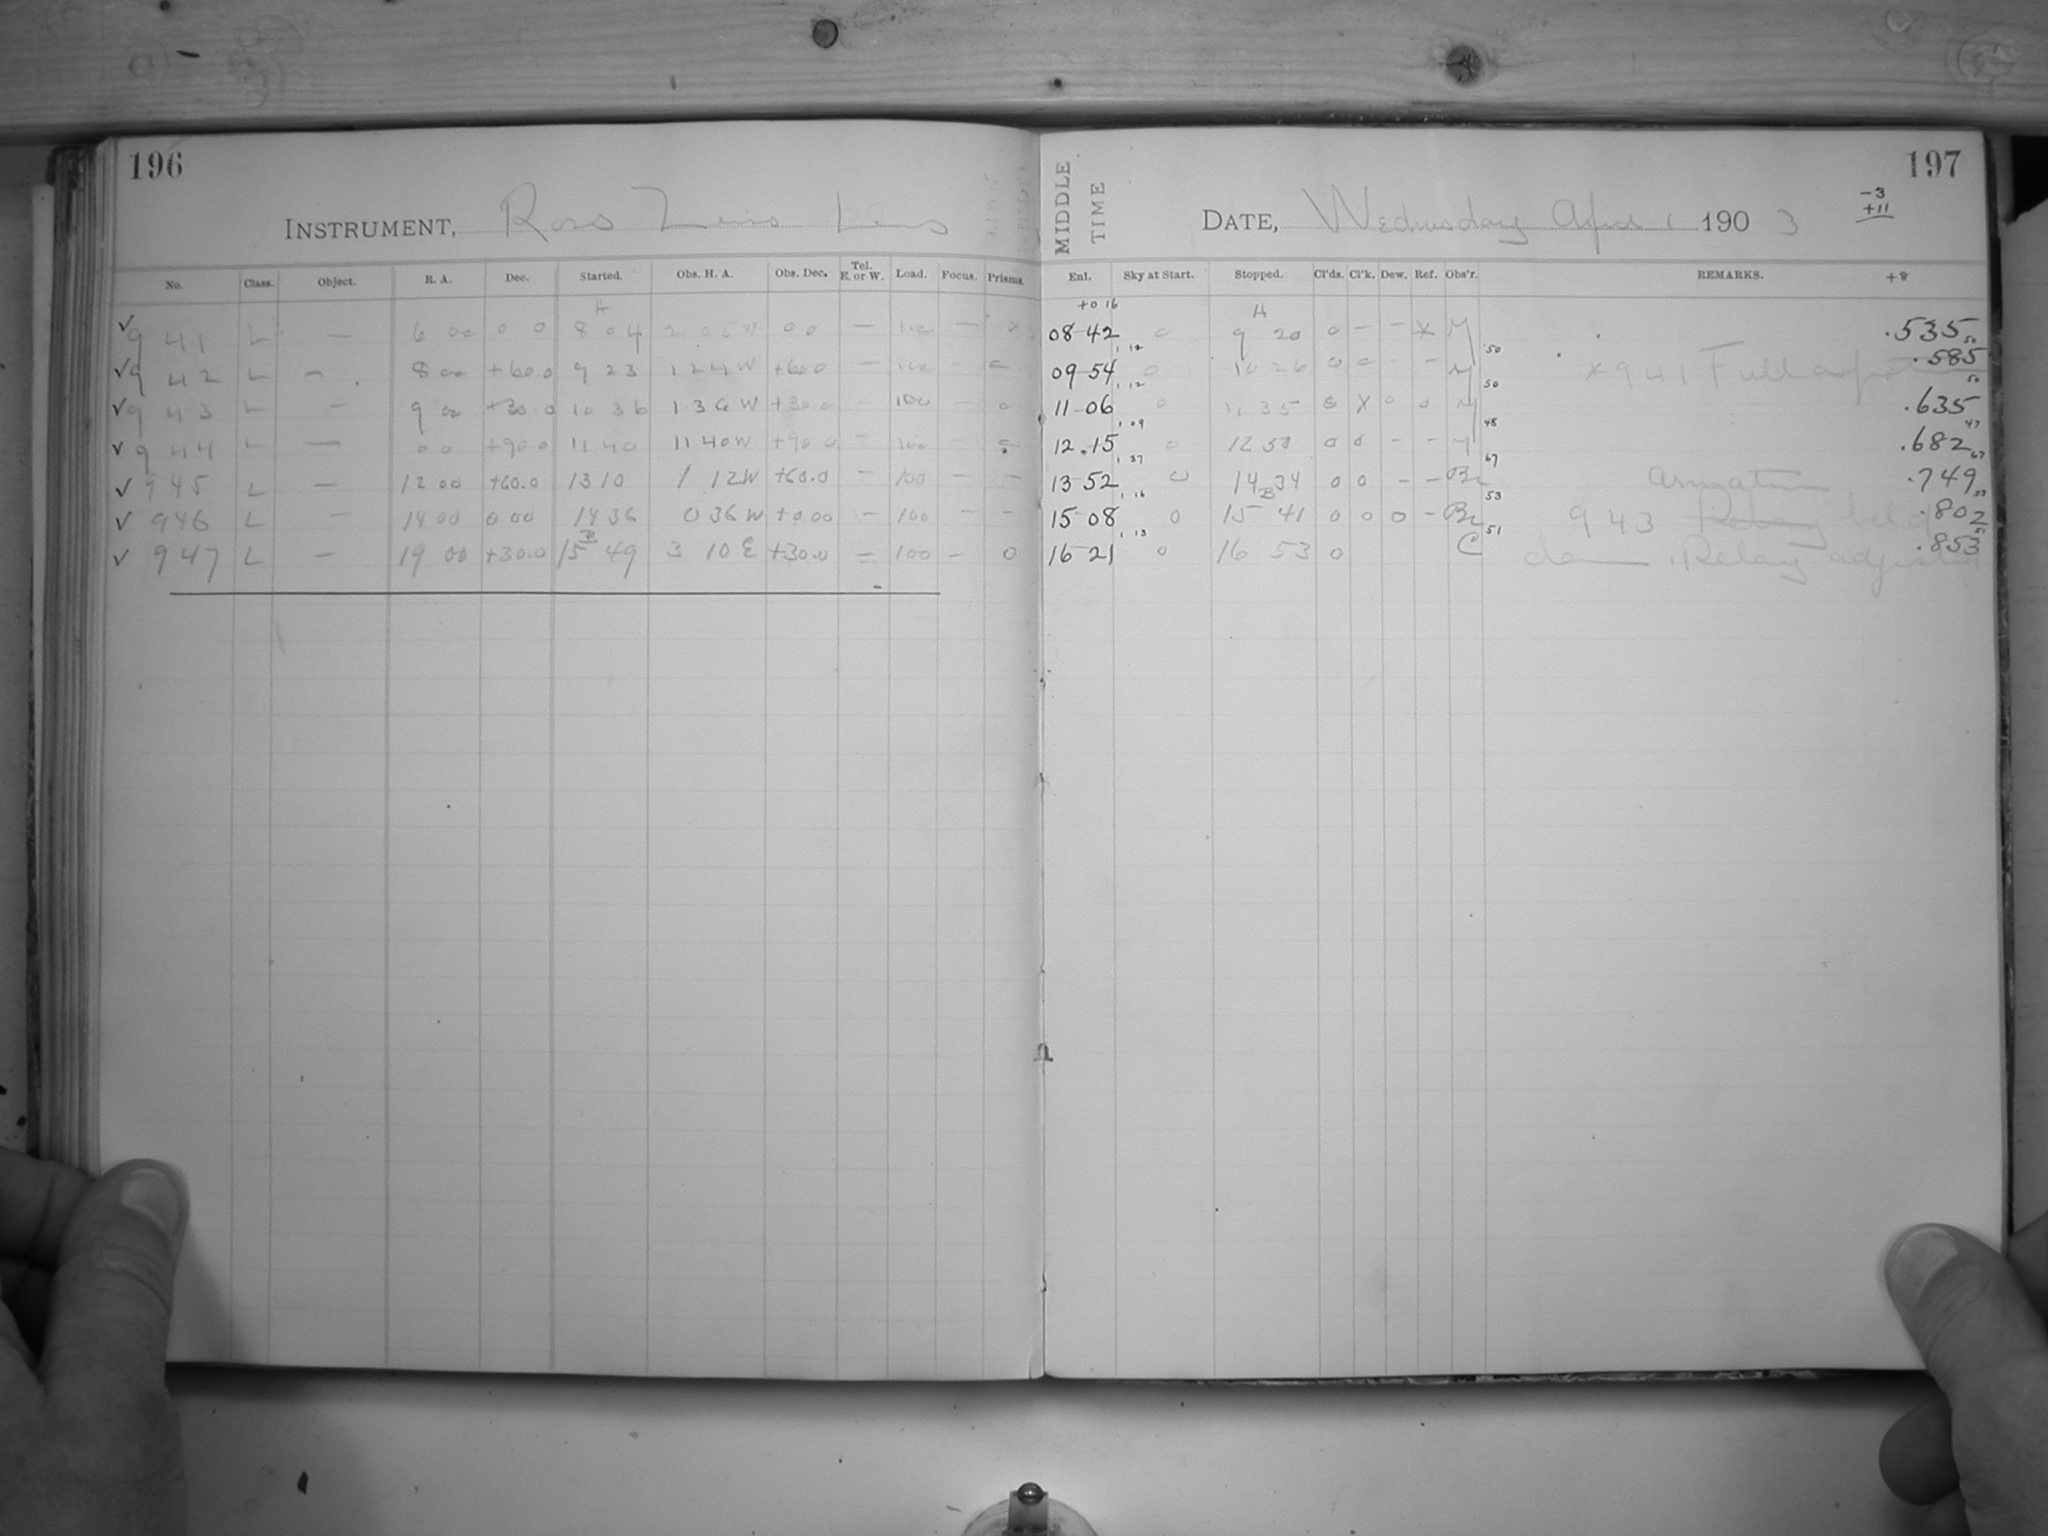 196
INSTRUMENT, Ross Zeiss Lens
No. Class. Object. R. A. Dec. Started. Obs. H. A. Obs. Dec. Tel. E. or W. Load. Focus. Prisms.
H
✓ 941 L — 6 00 0 0 8 04 2 05 W 0 0 — 100 —
✓ 942 L — 8 00 +60.0 9 23 1 24 W +60.0 — 100
✓ 943 L — 9 00 +30.0 10 36 1 36 W +30.0 — 100 — 0
✓ 944 L — 0 0 +90.0 11 40 11 40 W +90.0 — 100 —
✓ 945 L — 12 00 +60.0 13 10 1 12 W +60.0 — 100 — —
✓ 946 L — 14 00 0 00 14 36 0 36 W +0 00 — 100 — —
B
✓ 947 L — 19 00 +30.0 15 49 3 10 E +30.0 — 100 — 0
197
MIDDLE TIME
DATE, Wednesday April 1 1903
-3
+11
Enl. Sky at Start. Stopped. Cl'ds. Cl'k. Dew. Ref. Obs'r. REMARKS. +8
+0 16
H
08 42 0 9 20 0 — — X M .535 50
1 12 50
09 54 0 10 26 0 0 — — M x 941 Full .585 50
1 12 50
11 06 0 11 35 0 X 0 0 M .635 47
1 09 48
12.15 0 12 50 0 0 — — M .682 67
1 37 67
13 52 0 14 34 0 0 — — armature .749 53
1 16 B 53
15 08 0 15 41 0 0 0 — 943 Relay held .802 51
1 13 51
16 21 0 16 53 0 C down. Relay adjusted .853